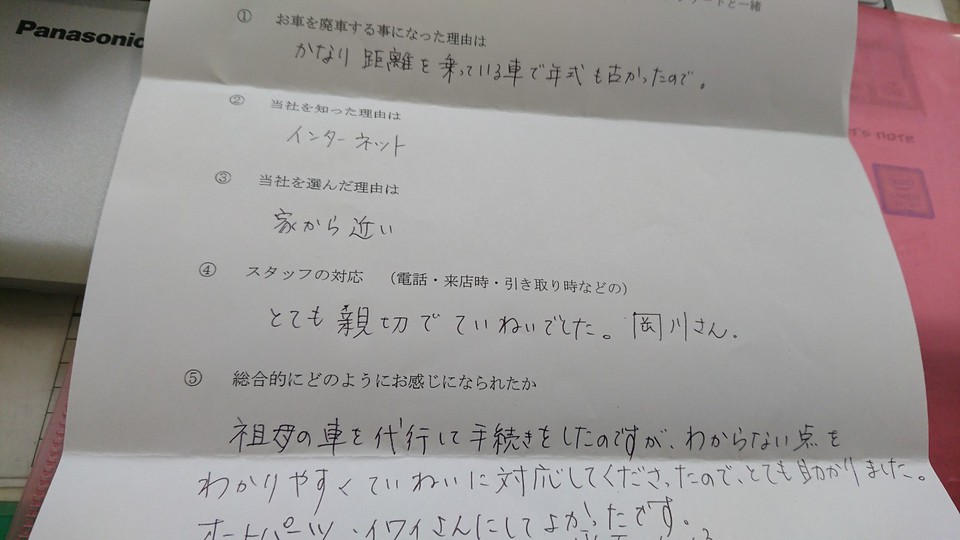 Panasonic
ケートと一緒
① お車を廃車する事になった理由は
かなり距離を乗っている車で年式も古かったので。
② 当社を知った理由は
インターネット
③ 当社を選んだ理由は
家から近い
④ スタッフの対応 (電話・来店時・引き取り時などの)
とても親切でていねいでした。岡川さん.
⑤ 総合的にどのようにお感じになられたか
祖母の車を代行して手続きをしたのですが、わからない点を
わかりやすくていねいに対応してくださったので、とても助かりました。
オートパーツ・イワイさんにしてよかったです。